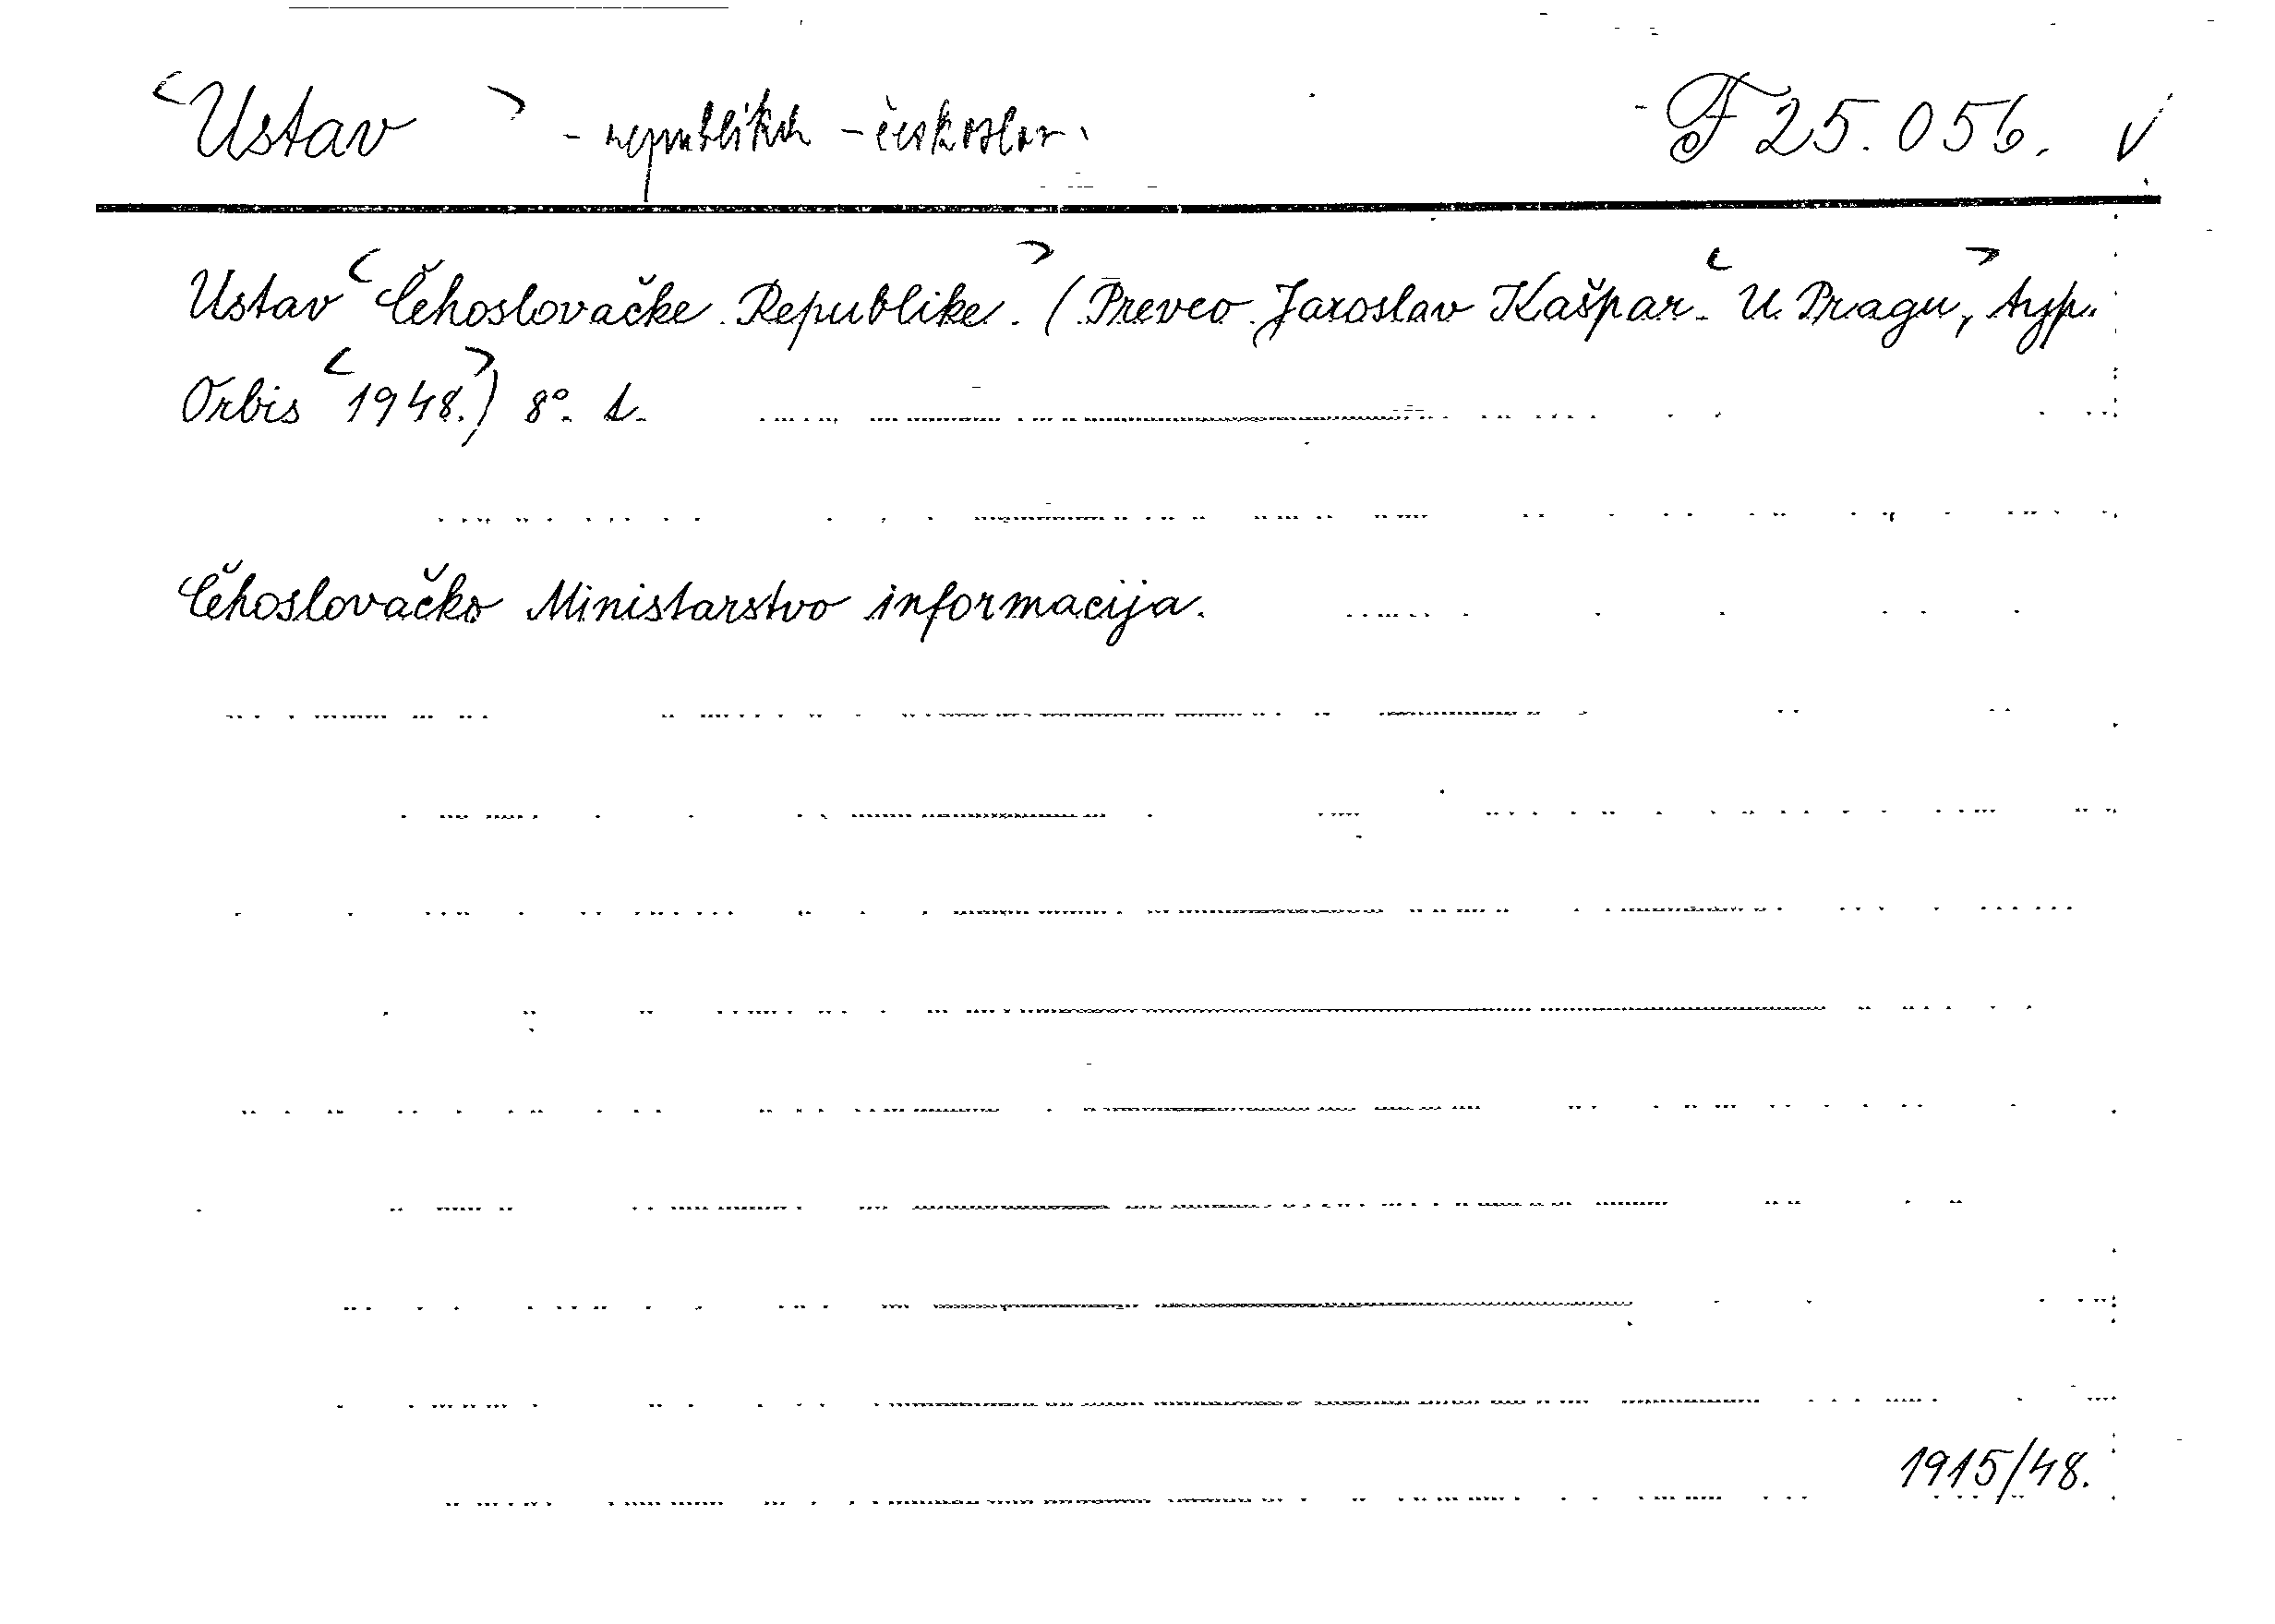 <Ustav> - republiky - českoslov. F 25.056. √
Ustav <Čehoslovačke Republike.> (Preveo Jaroslav Kašpar. <U Pragu,> typ.
Orbis <1948.>) 8°. s.
Čehoslovačko Ministarstvo informacija.
1915/48.